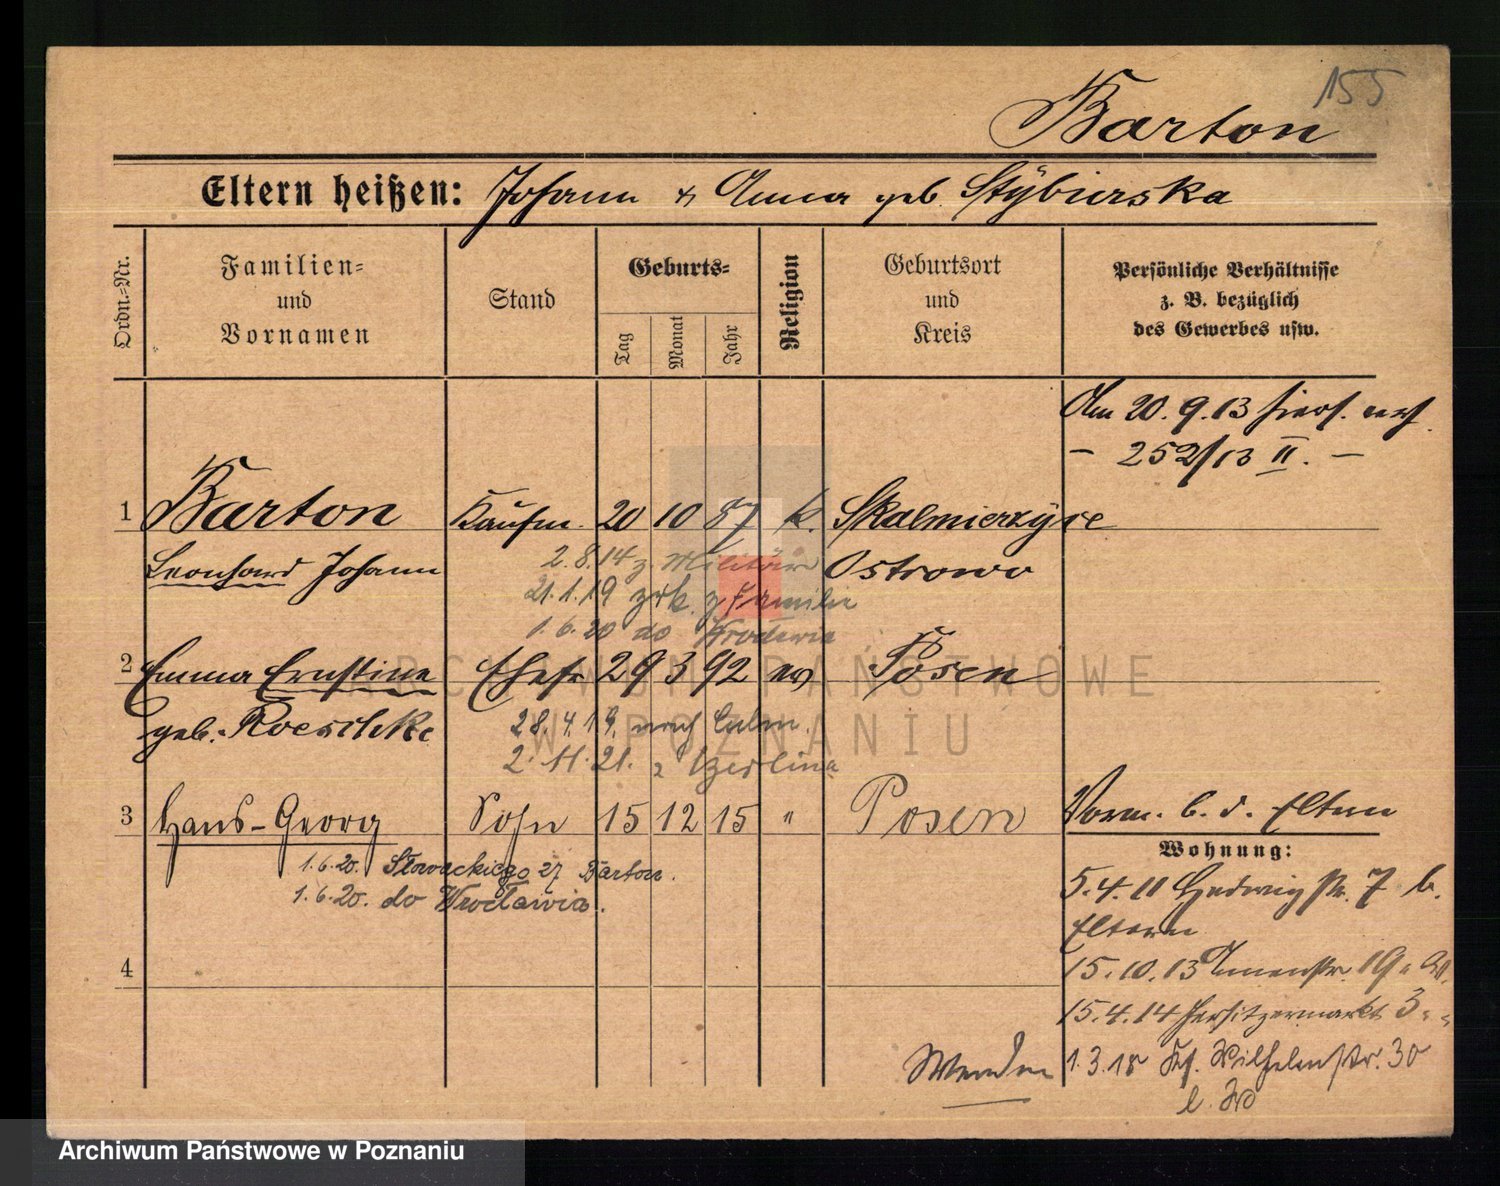 155
Barton
Eltern heißen: Johann & Anna geb. Stÿburska
Ordn.-Nr.
Familien-
und
Vornamen
Stand
Geburts-
Tag
Monat
Jahr
Religion
Geburtsort
und
Kreis
Persönliche Verhältnisse
z. B. bezüglich
des Gewerbes usw.
Am 20.9.13 hiers.
- 252/13 II. -
1 Barton Kaufm. 20 10 87 k. Skalmierzÿce
Leonhard Johann Ostrowo
2.8.14 z. Militär
21.1.19 zrk. z Familie
1.6.20 do Wrocławia
2 Emma Ernstine Ehefr 29 3 92 ev Posen
geb. Roeschke
28.4.19. nach Culm.
2.11.21. z Berlina
3 Hans-Georg Sohn 15 12 15 " Posen
1.6.20. Słowackiego 27 Barton.
1.6.20. do Wrocławia.
Vorm. b. d. Eltern
Wohnung:
5.4.11 Hedwigstr. 7 b.
Eltern
15.10.13 19
15.4.14 Jersitzermarkt 3 " "
1.3.18 Ks. Wilhelmstr. 30
4
Wenden
ARCHIWUM PAŃSTWOWE
W POZNANIU
Archiwum Państwowe w Poznaniu